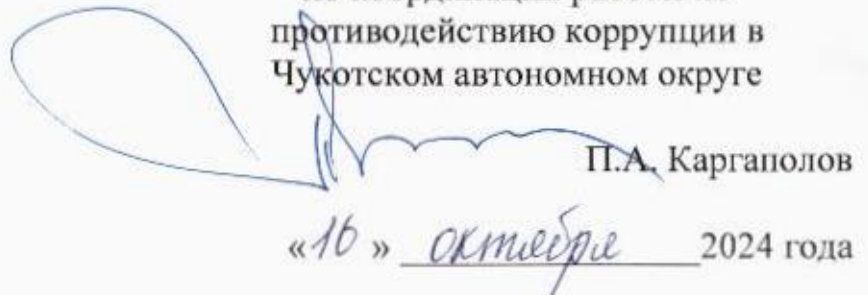 противодействию коррупции в
Чукотском автономном округе
П.А. Каргаполов
«16» октября 2024 года